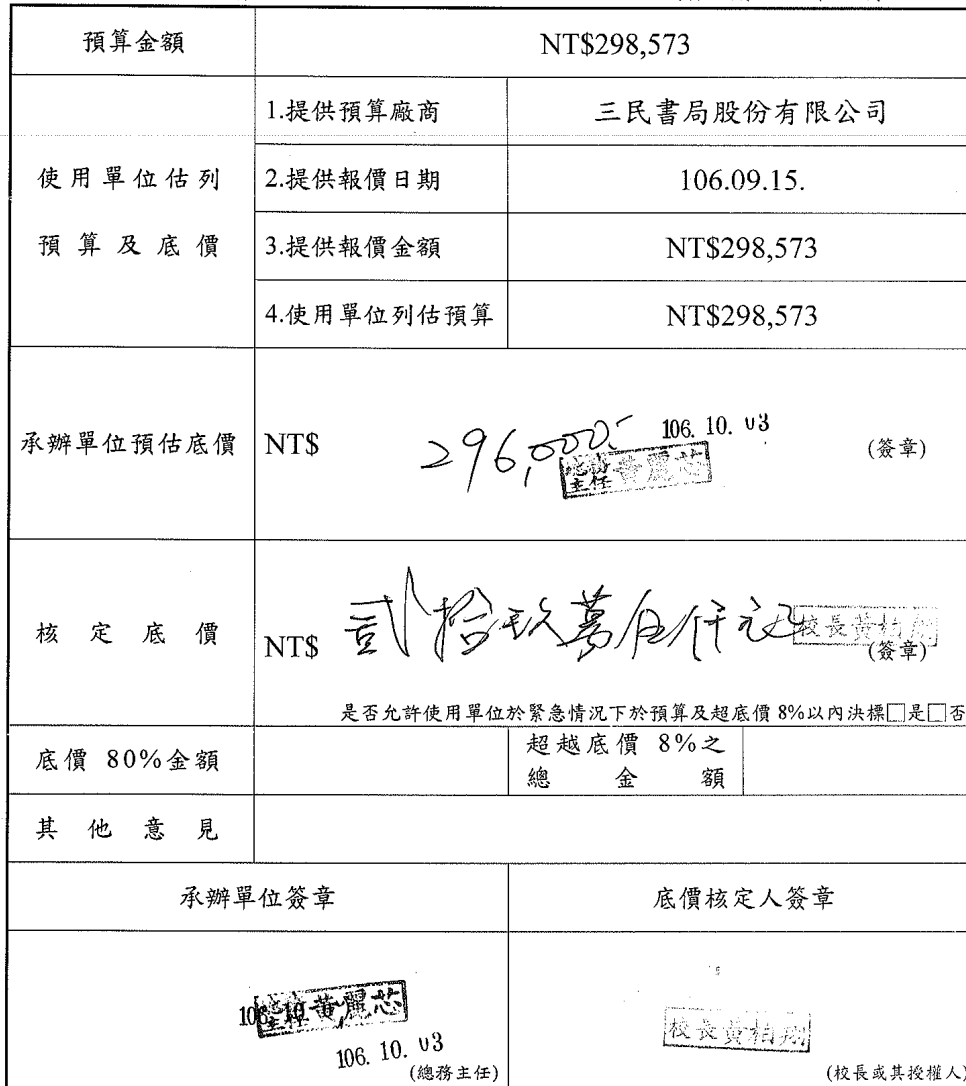 預算金額 NT$298,573
使用單位估列
預算及底價
1.提供預算廠商 三民書局股份有限公司
2.提供報價日期 106.09.15.
3.提供報價金額 NT$298,573
4.使用單位列估預算 NT$298,573
承辦單位預估底價 NT$ 296,000.- 106. 10. 03 (簽章)
總務主任 黃麗芯
核定底價 NT$ 貳拾玖萬伍仟元 校長黃柏翔 (簽章)
是否允許使用單位於緊急情況下於預算及超底價 8%以內決標□是□否
底價 80%金額
超越底價 8%之
總金額
其他意見
承辦單位簽章 底價核定人簽章
總務主任 黃麗芯
校長黃柏翔
106. 10. 03
(總務主任) (校長或其授權人)